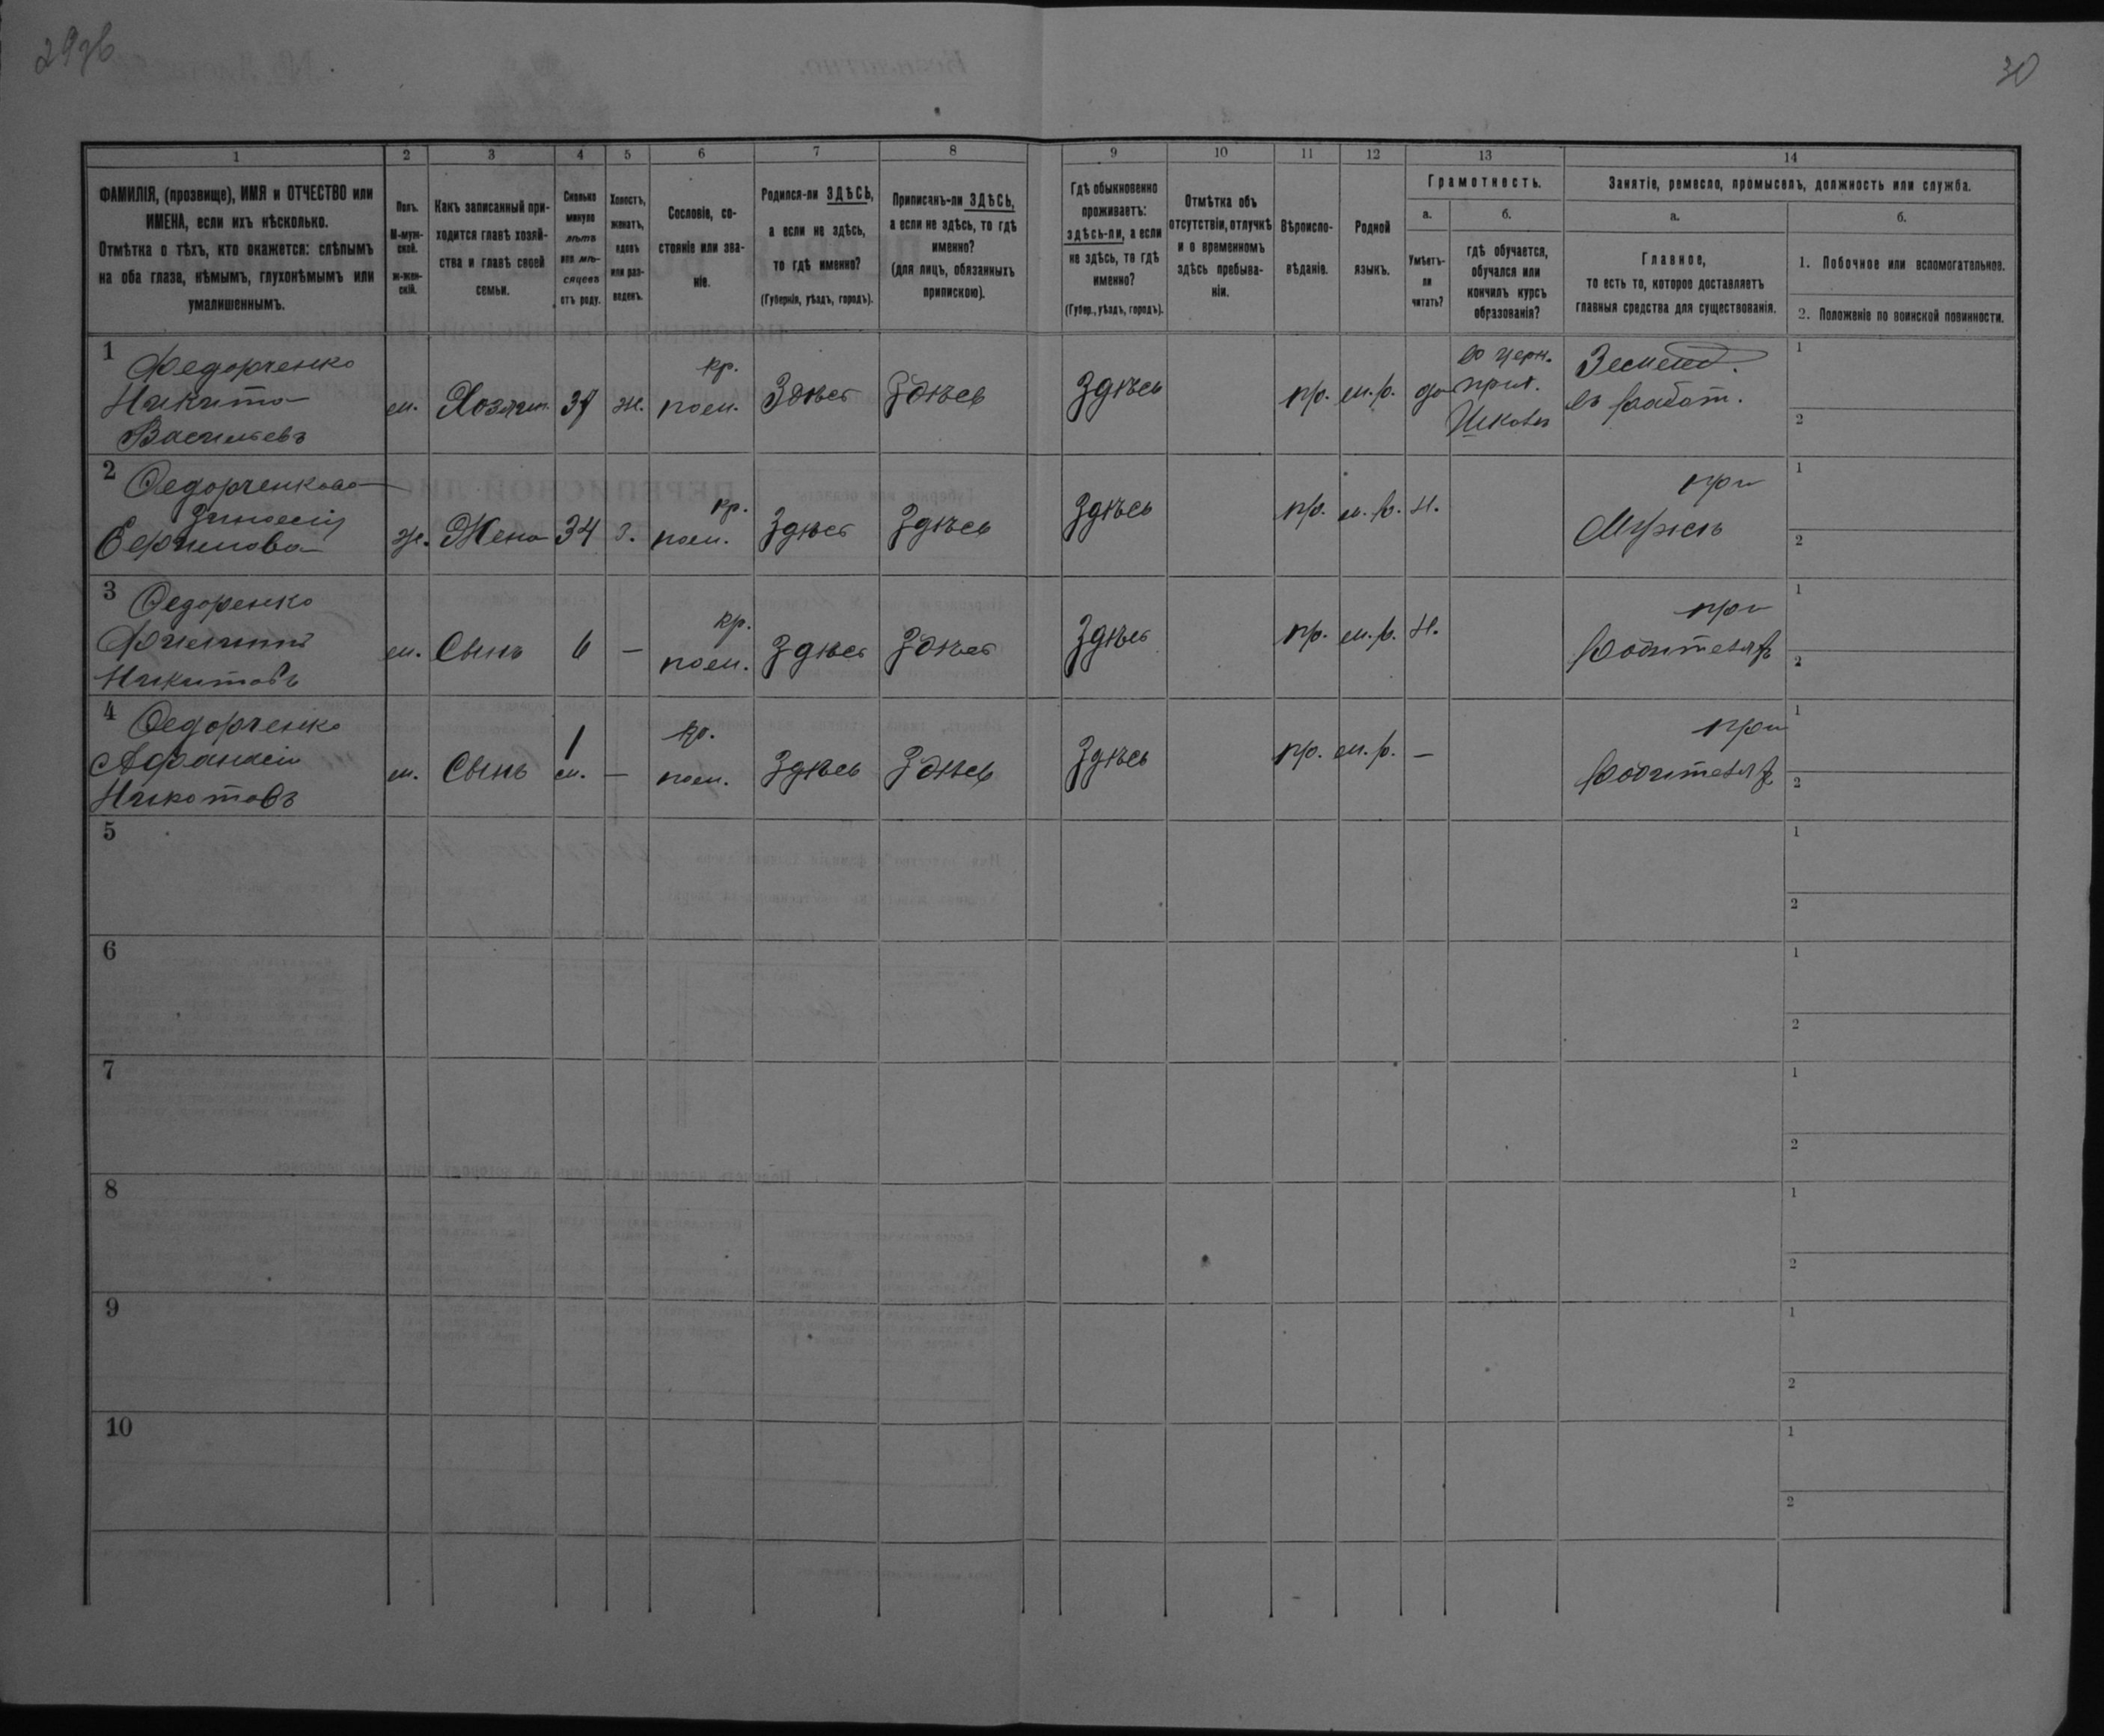 29об
30
1
2
3
4
5
6
7
8
9
10
11
12
13
14
ФАМИЛІЯ, (прозвище), ИМЯ и ОТЧЕСТВО или
ИМЕНА, если ихъ нѣсколько.
Отмѣтка о тѣхъ, кто окажется: слѣпымъ
на оба глаза, нѣмымъ, глухонѣмымъ или
умалишеннымъ.
Полъ.
М-муж-
ской.
Ж-жен-
скій.
Какъ записанный при-
ходится главѣ хозяй-
ства и главѣ своей
семьи.
Сколько
минуло
лѣтъ
или мѣ-
сяцевъ
отъ роду.
Холостъ,
женатъ,
вдовъ
или раз-
веденъ.
Сословіе, со-
стояніе или зва-
ніе.
Родился-ли ЗДѢСЬ,
а если не здѣсь,
то гдѣ именно?
(Губернія, уѣздъ, городъ).
Приписанъ-ли ЗДѢСЬ,
а если не здѣсь, то гдѣ
именно?
(для лицъ, обязанныхъ
припискою).
Гдѣ обыкновенно
проживаетъ:
здѣсь-ли, а если
не здѣсь, то гдѣ
именно?
(Губер., уѣздъ, городъ).
Отмѣтка объ
отсутствіи, отлучкѣ
и о временномъ
здѣсь пребыва-
ніи.
Вѣроиспо-
вѣданіе.
Родной
языкъ.
Грамотность.
а.
Умѣетъ-
ли
читать?
б.
гдѣ обучается,
обучался или
кончилъ курсъ
образованія?
Занятіе, ремесло, промыселъ, должность или служба.
а.
Главное,
то есть то, которое доставляетъ
главныя средства для существованія.
б.
1. Побочное или вспомогательное.
2. Положеніе по воинской повинности.
1
Федорченко
Никита
Васильевъ
м.
Хозяин
ж.
кр.
пом.
Здѣсь
Здѣсь
Здѣсь
пр.
м.р.
да
прих.
въ работ.
1
2
2
Федорченкова
Ефимова
ж.
Жена
34
З.
кр.
пом.
Здѣсь
Здѣсь
Здѣсь
пр.
м.р.
Н.
при
Мужѣ
1
2
3
Федоренко
Никитовъ
м.
Сынъ
6
—
кр.
пом.
Здѣсь
Здѣсь
Здѣсь
пр.
м.р.
Н.
при
родителях
1
2
4
Федорченко
Афанасій
Никитовъ
м.
Сынъ
1
м.
—
кр.
пом.
Здѣсь
Здѣсь
Здѣсь
пр.
м.р.
—
при
родителях
1
2
5
1
2
6
1
2
7
1
2
8
1
2
9
1
2
10
1
2